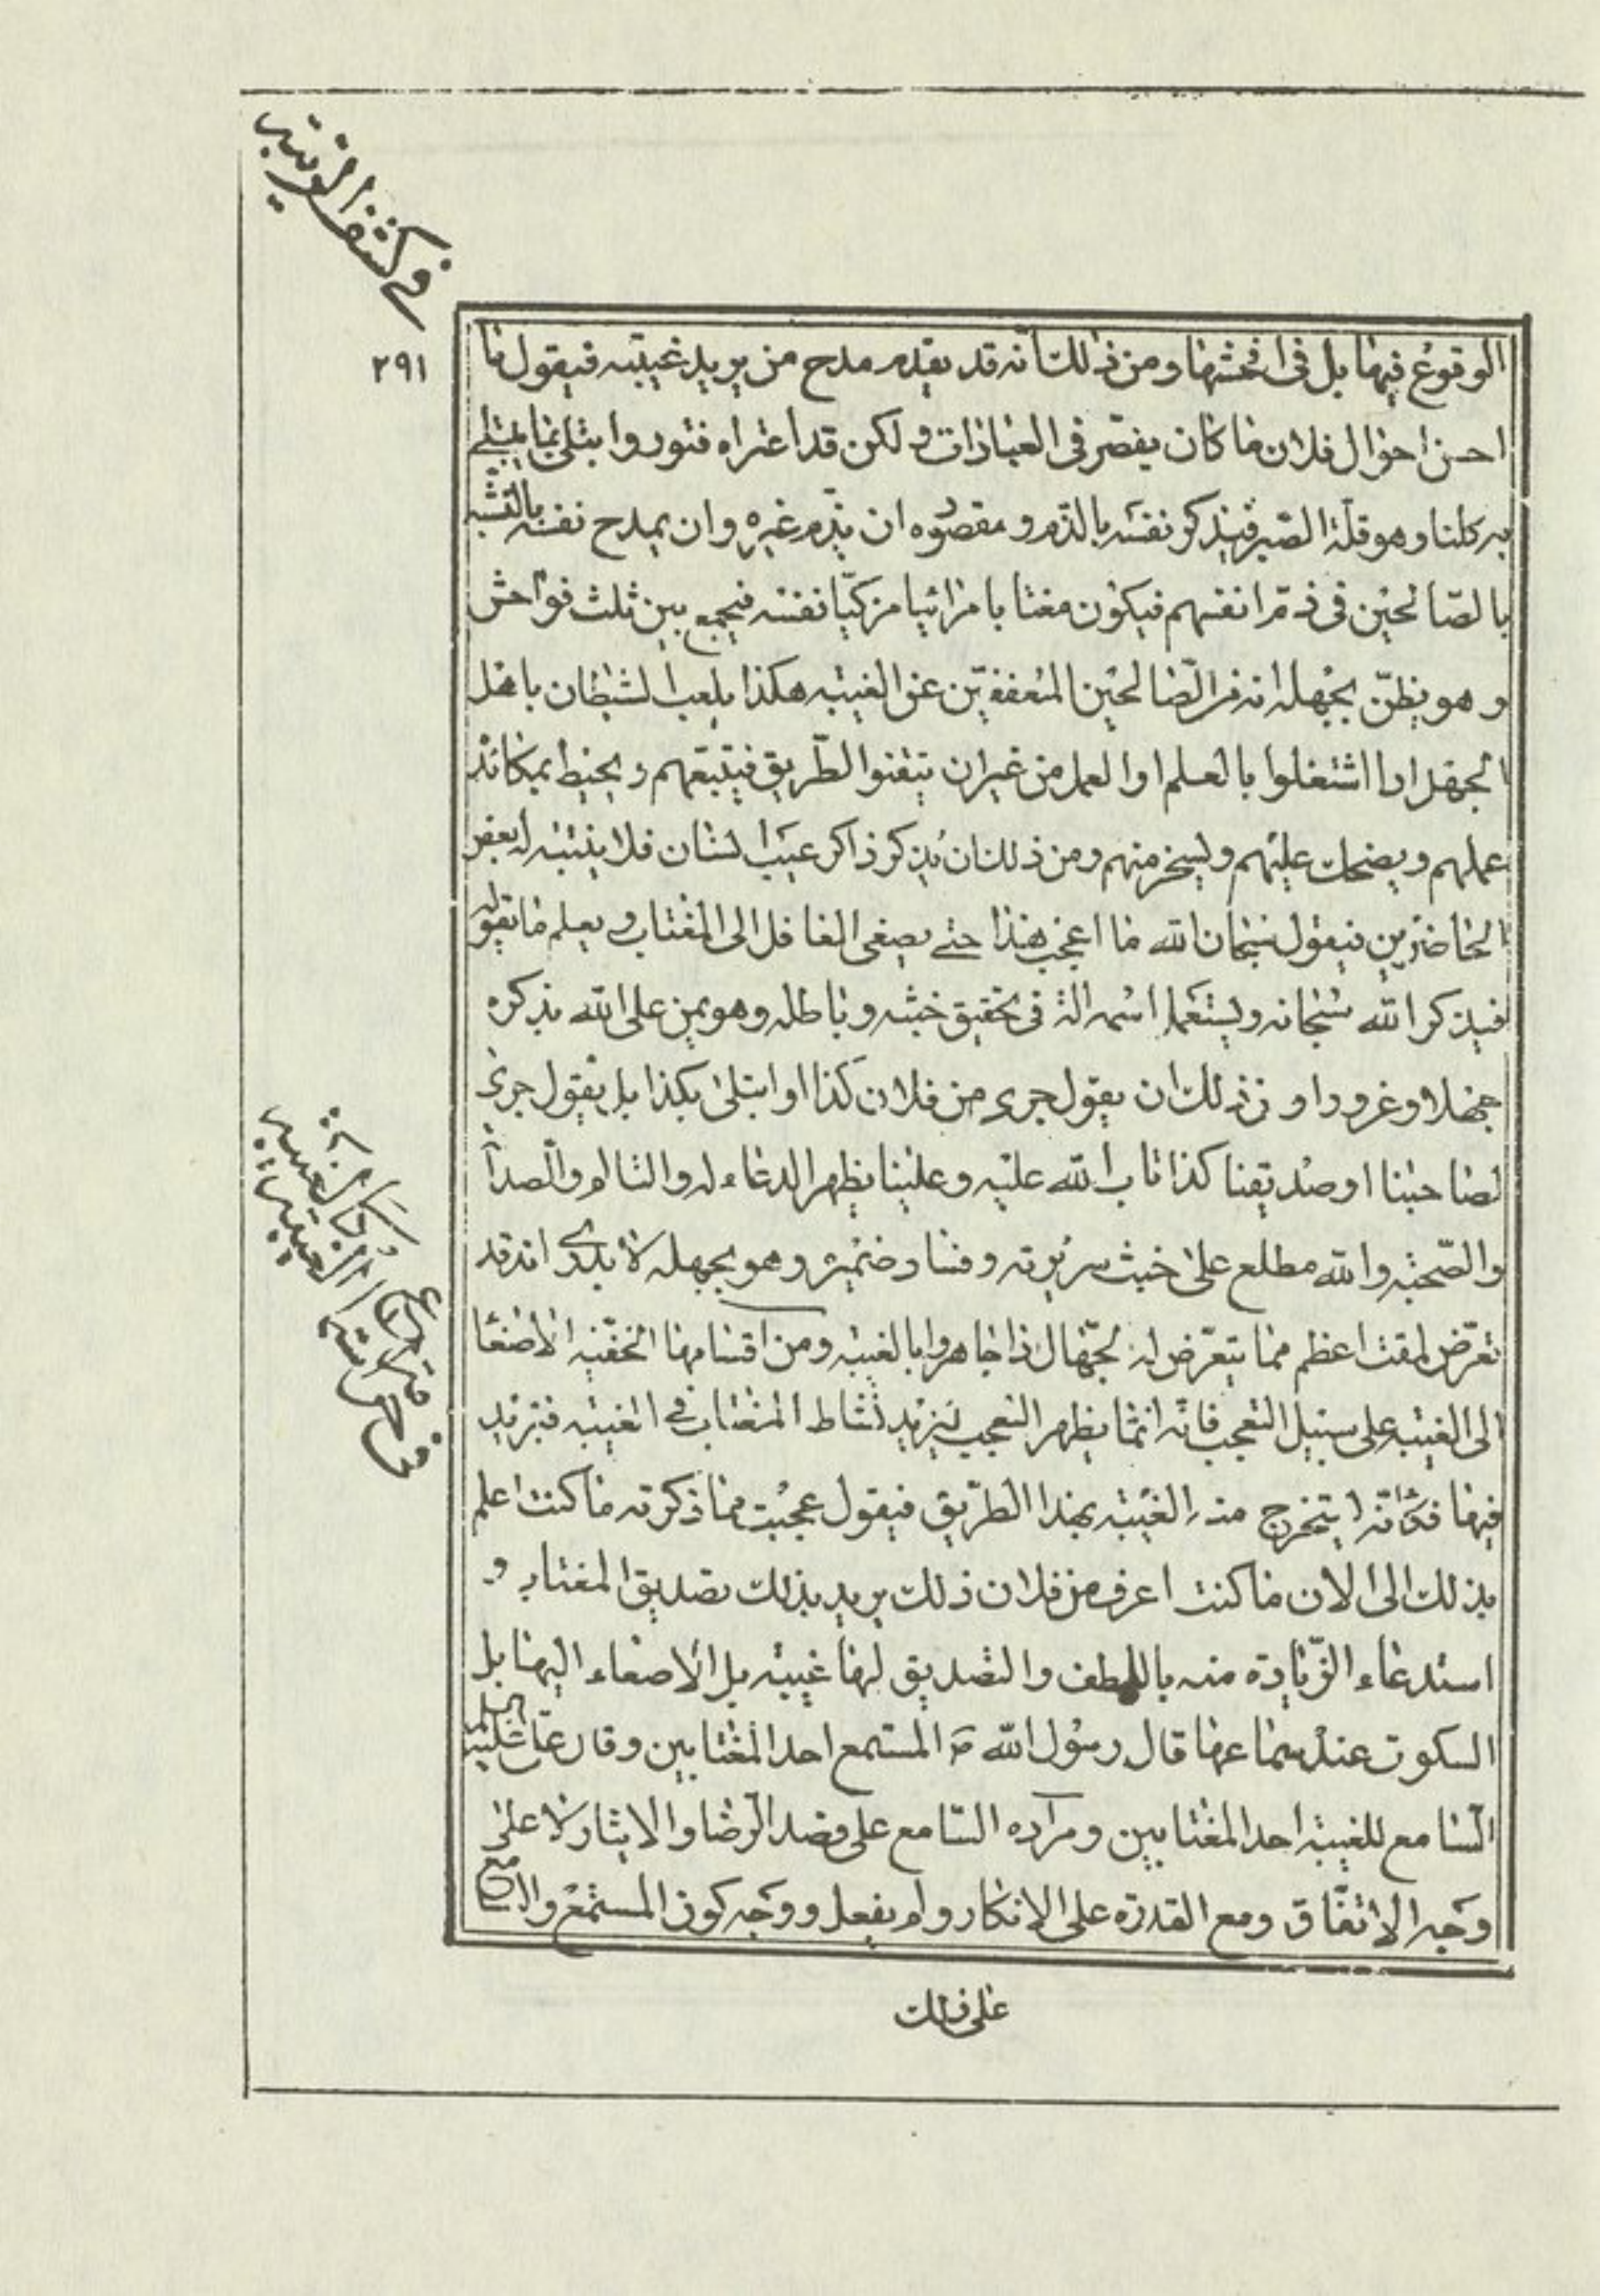 في كشف الريبة
٢٩١
الوقوع فيها بل في افحشها ومن ذلك انه قد يقدم مدح من يريد غيبته فيقول ما
احسن احوال فلان ما كان يقصّر في العبادات ولكن قد اعتراه فتور وابتلى بما يبتلى
به كلنا وهو قلّة الصّبر فيذكر نفسه بالذّم ومقصوده ان يذّم غيره وان يمدح نفسه بالتشبه
بالصّالحين في ذمّ انفسهم فيكون مغتابا مرائيا مزكيّا نفسه فيجمع بين ثلث فواحش
وهو يظنّ بجهله انه من الصّالحين المتعففين عن الغيبة هكذا يلعب الشيطان باهل
الجهل اذا اشتغلوا بالعلم او العمل من غير ان يتقنوا الطّريق فيتبعهم ويحبط بمكائده
عملهم ويضحك عليهم ويسخر منهم ومن ذلك ان يذكر ذاكر عيب انسان فلا يتنبه له بعض
الحاضرين فيقول سبحان الله ما اعجب هذا حتى يصغى الغافل الى المغتاب ويعلم ما يقوله
فيذكر الله سبحانه ويستعمل اسمه الة في تحقيق خبثه وباطله وهو يمن على الله بذكره
جهلا وغرورا ومن ذلك ان يقول جرى من فلان كذا او ابتلى بكذا بل يقول جرى
لصاحبنا او صديقنا كذا تاب الله عليه وعلينا يظهر الدعاء له والتالم والصداقة
والصّحبة والله مطلع على خبث سريرته وفساد ضميره وهو بجهله لا يدرى انه قد
تعرّض لمقت اعظم مما يتعرّض له الجهّال اذا جاهروا بالغيبة ومن اقسامها الخفيّة الاصغاء
الى الغيبة على سبيل التعجب فانّه انّما يظهر التعجب ليزيد نشاط المغتاب في الغيبة فيزيد
فيها فكانّه يستخرج منه الغيبة بهذا الطّريق فيقول عجبت مما ذكرته ما كنت اعلم
بذلك الى الان ما كنت اعرف من فلان ذلك يريد بذلك تصديق المغتاب و
استدعاء الزّيادة منه باللطف والتصديق لها غيبة بل الاصغاء اليها بل
السكوت عند سماعها قال رسول الله ص المستمع احد المغتابين وقال علىّ عليه السلم
السّامع للغيبة احد المغتابين ومراده السّامع على قصد الرّضا والايثار لا على
وجه الاتفّاق ومع القدرة على الانكار ولم يفعل ووجه كون المستمع والسامع
على ذلك